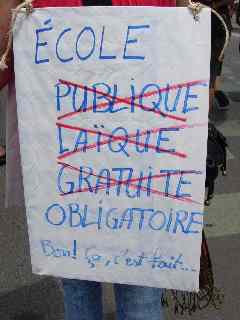 ÉCOLE
PUBLIQUE
LAÏQUE
GRATUITE
OBLIGATOIRE
Bon! Ça, c'est fait...